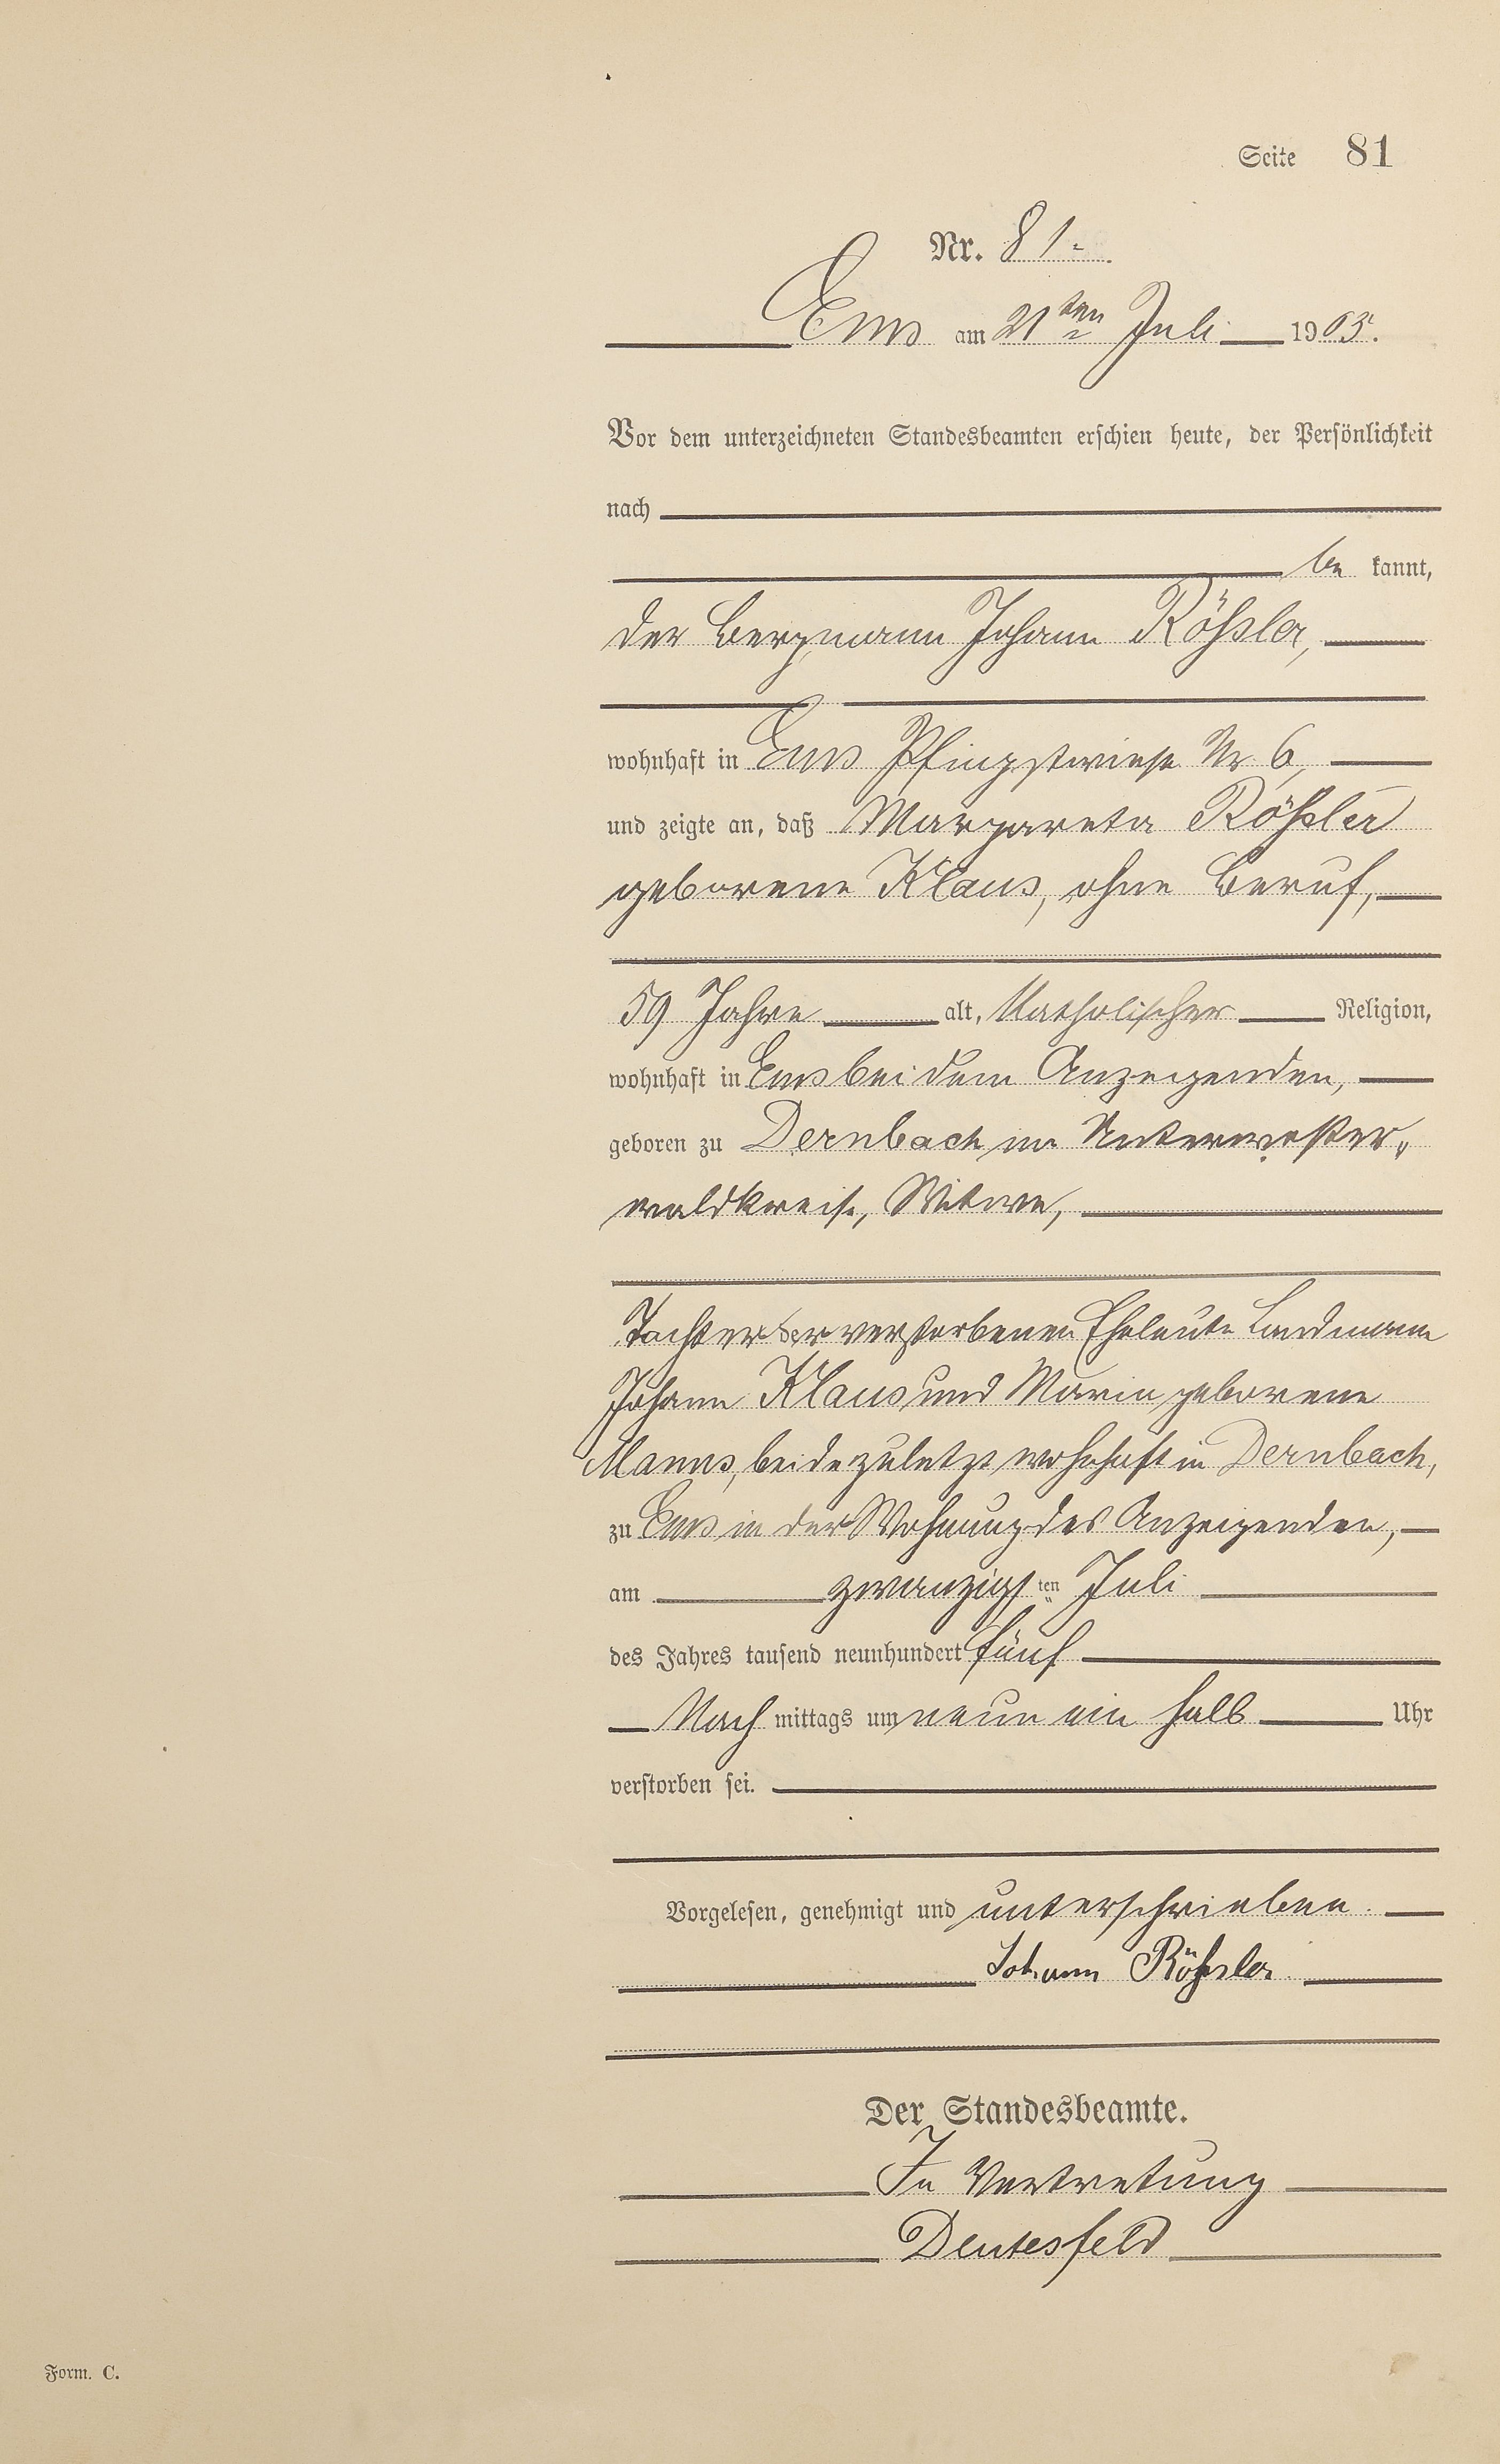 Seite 81
Nr. 81.
Ems am 21ten Juli 1905.
Vor dem unterzeichneten Standesbeamten erschien heute, der Persönlichkeit
nach
be kannt,
der Bergmann Johann Rößler,
wohnhaft in Ems Pfingstwiese Nr 6,
und zeigte an, daß Margareta Rößler
geborene Klaus, ohne Beruf,
59 Jahre alt, Katholischer Religion,
wohnhaft in Ems bei dem Anzeigenden,
geboren zu Dernbach im Unterwester„
waldkreise, Witwe,
Tochter der verstorbenen Eheleute Landmann
Johann Klaus und Maria geborene
Manns, beide zuletzt wohnhaft in Dernbach,
zu Ems in der Wohnung des Anzeigenden,
am zwanzigsten Juli
des Jahres tausend neunhundert fünf
Nach mittags um neun ein halb Uhr
verstorben sei.
Vorgelesen, genehmigt und unterschrieben.
Johann Rößler
Der Standesbeamte.
In Vertretung
Deutesfeld
Form. C.